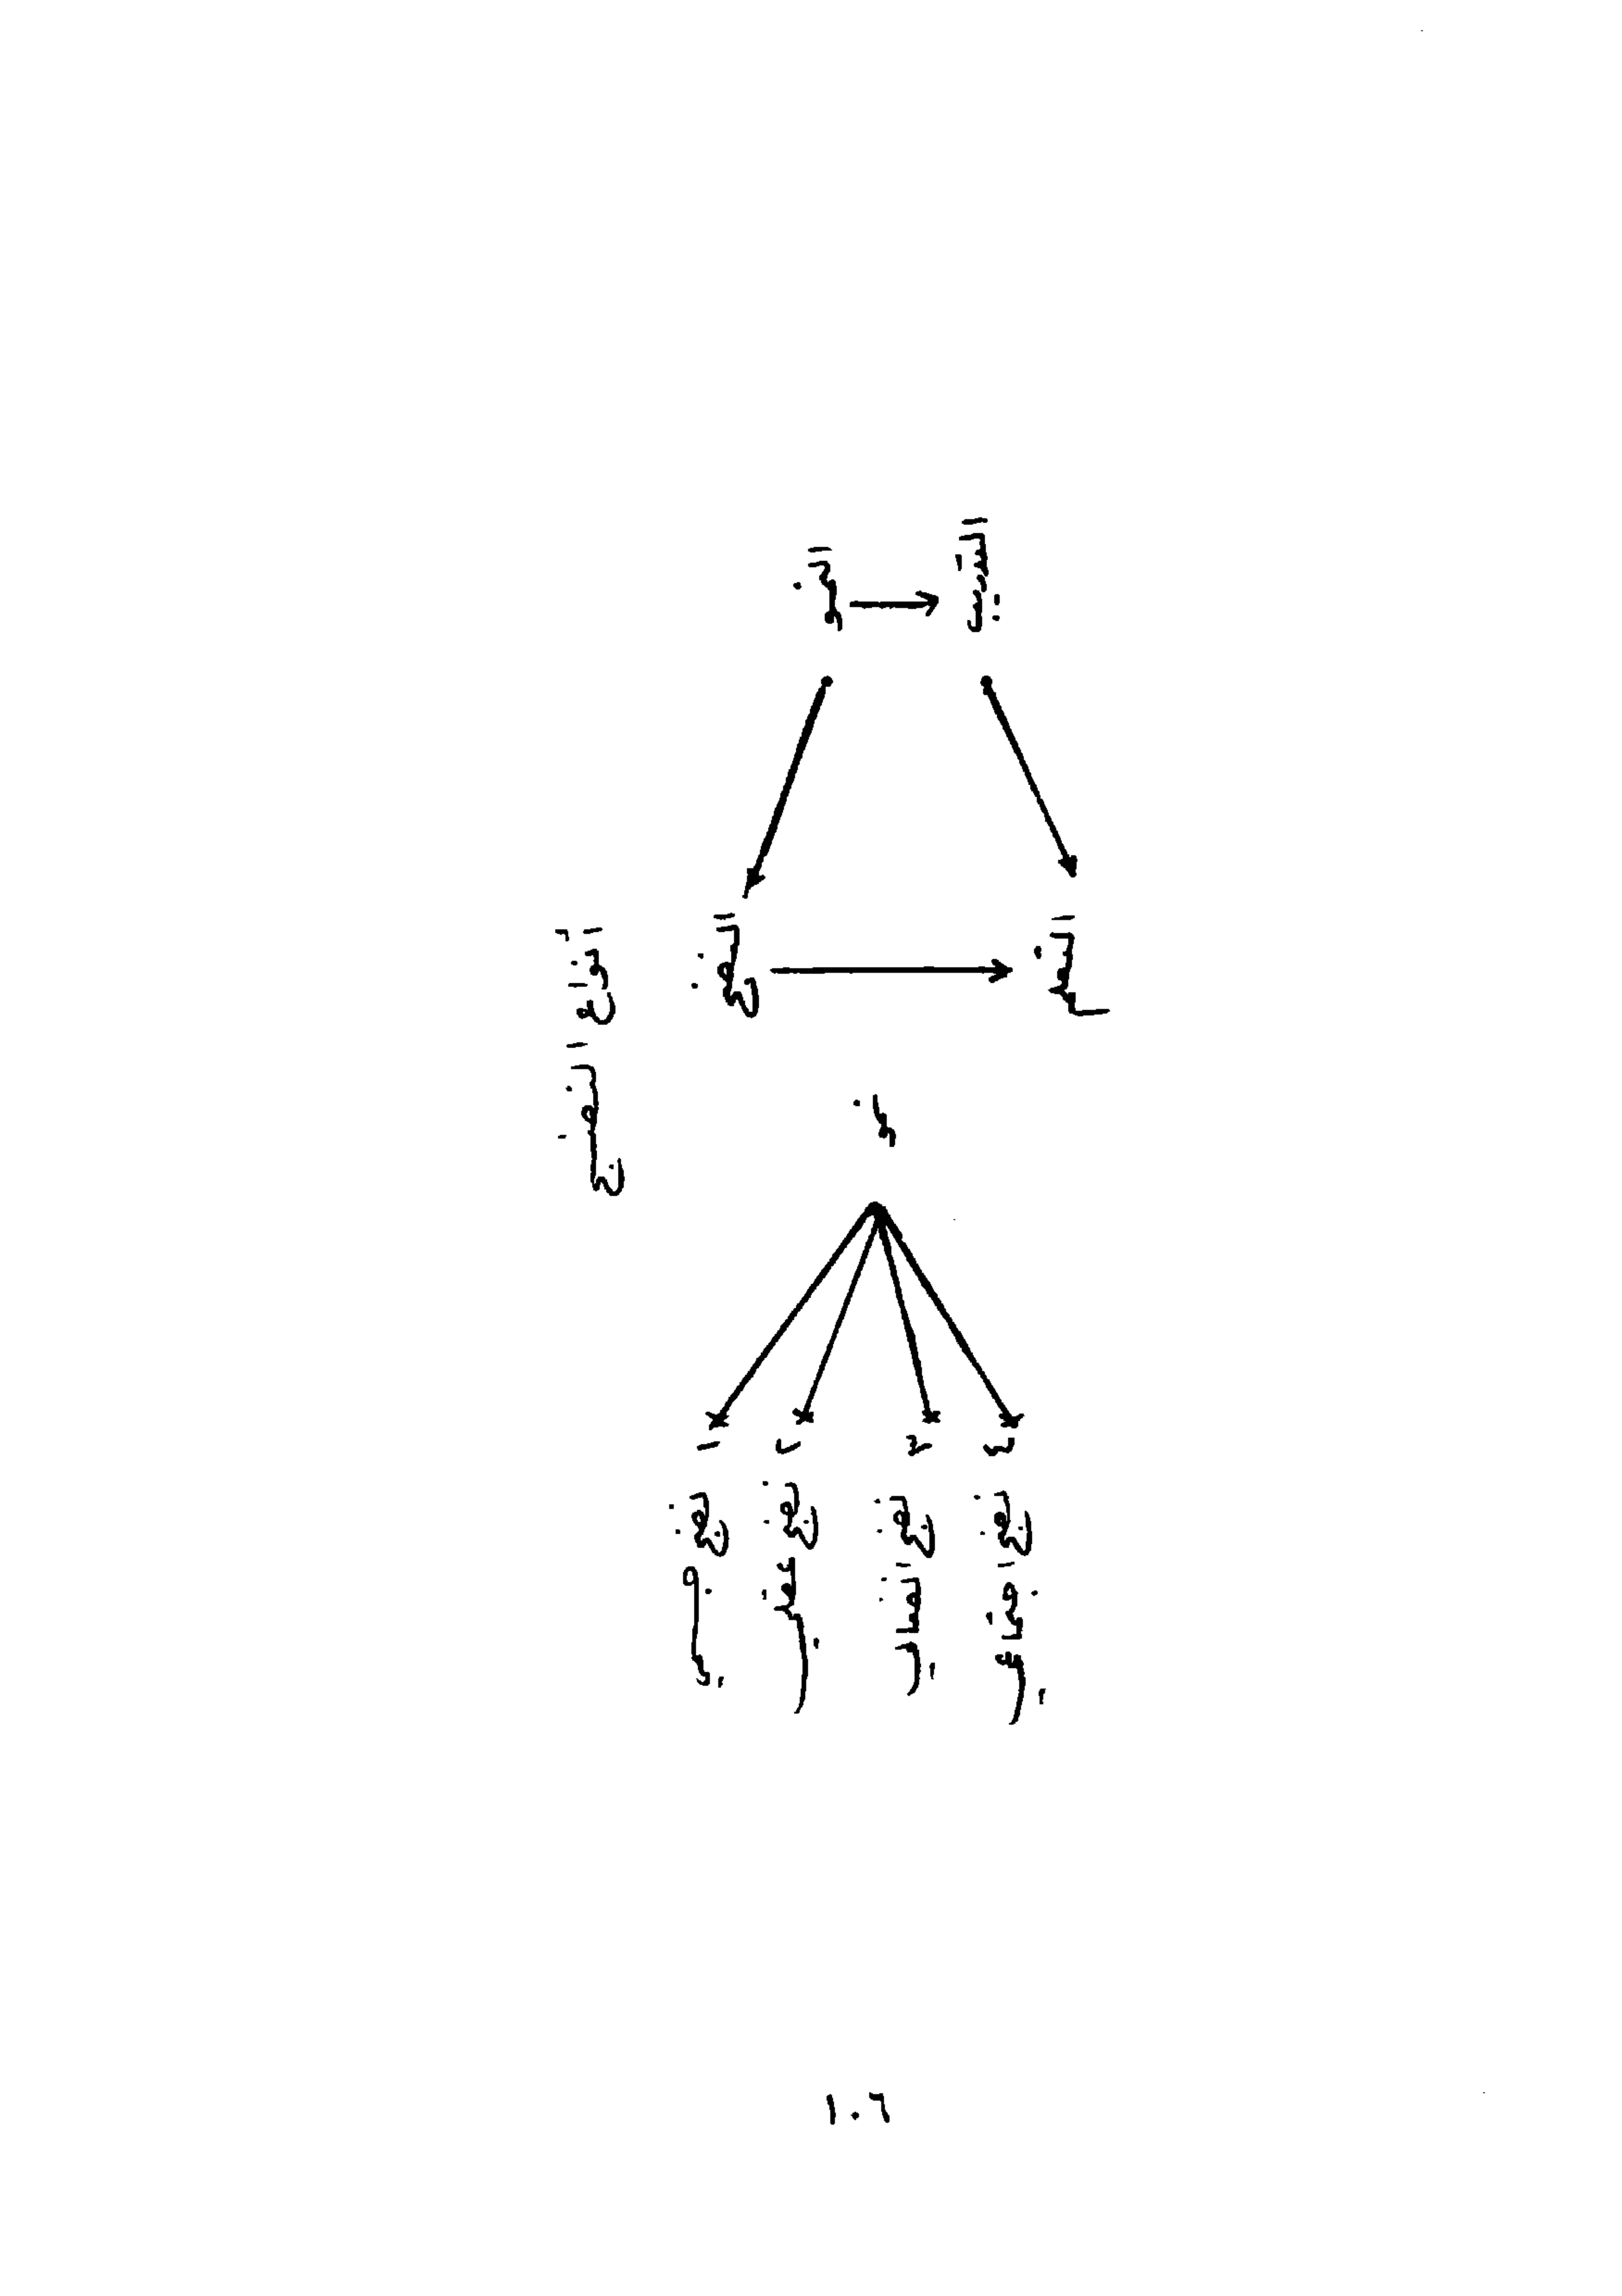 أنواع النضج
النضج
النمو
التعلم
نمو
١ نضج جسمي
٢ نضج عقلي
٣ نضج انفعالي
٤ نضج اجتماعي
١٠٦